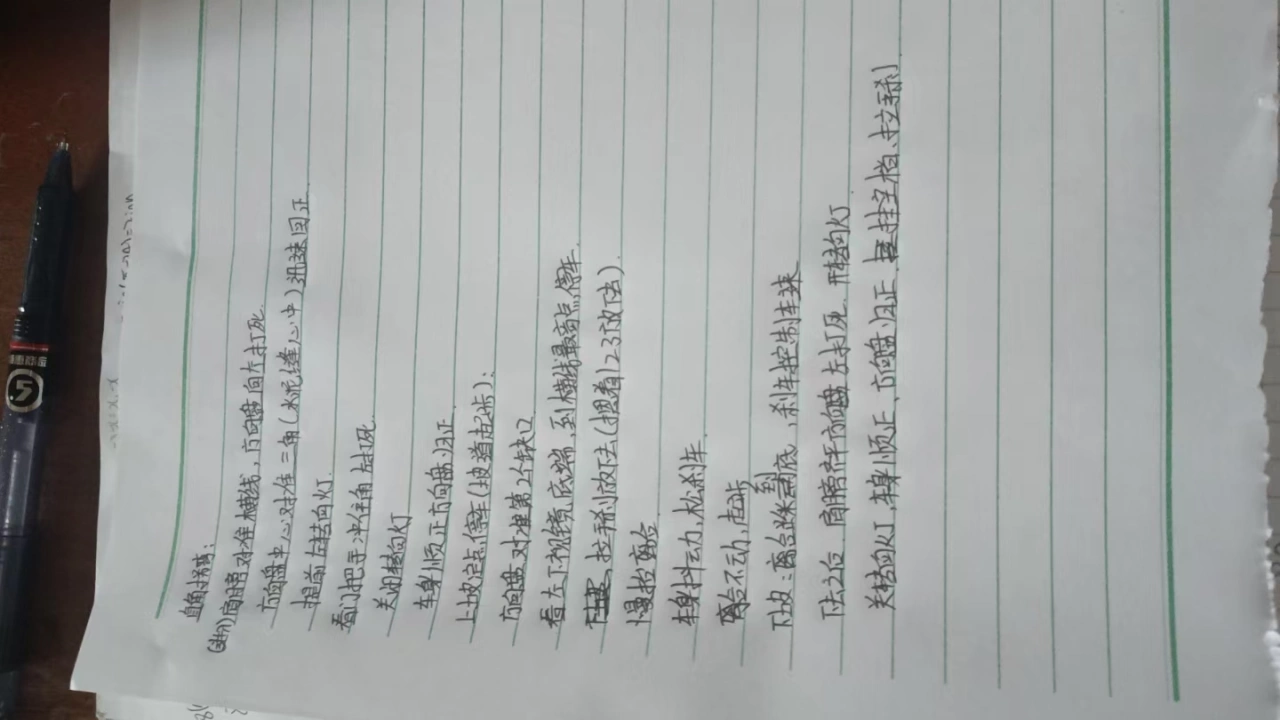 直角转弯:
(进入)肩膀对准横线,方向盘向左打死.
方向盘中心对准三角(水泥缝心中)迅速回正
提前左转向灯.
看门把手冲住角左打死.
关闭转向灯
车身顺正方向盘归正.
上坡定点停车(坡道起步):
方向盘对准第2个缺口
看左下视镜底端,到横线最高点,停车.
拉手刹放下去(摁着123放下去).
慢抬离合
车身抖动,松刹车.
离合不动,起步
下坡:离合踩到底,刹车控制车速
下去之后 肩膀齐平方向盘左打死. 开转向灯.
关转向灯,车身顺正、方向盘归正、挂空档、拉手刹